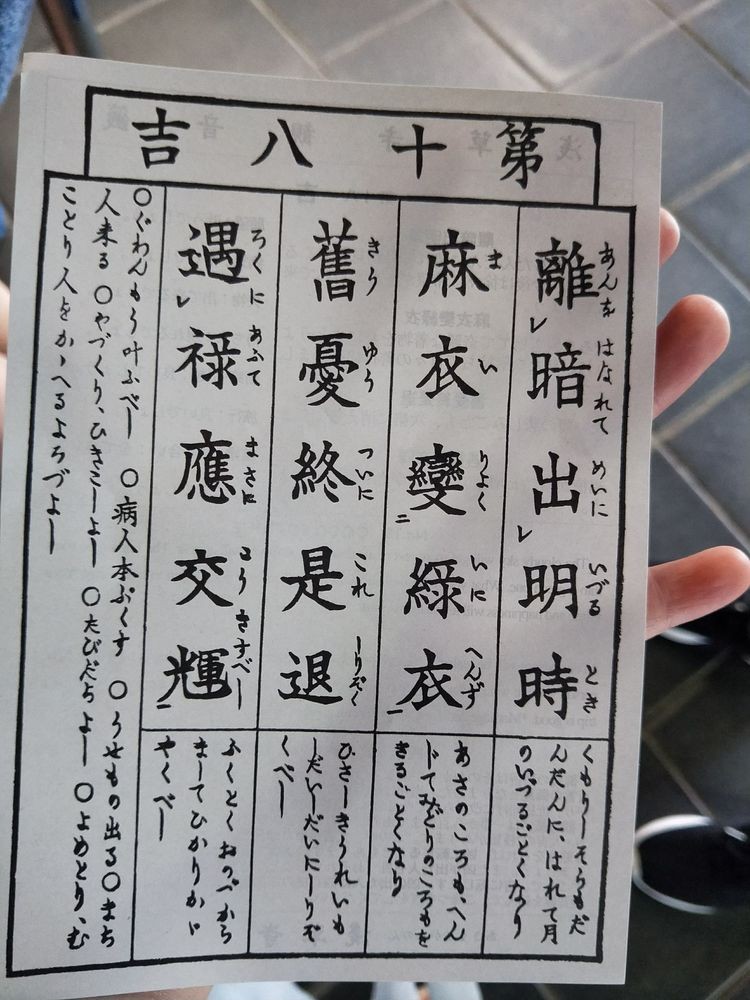 第十八吉
あんを はなれて めいに いづる とき
離レ暗出レ明時
くもりしそらもだ
んだんに、はれて月
のいづるごとくなり
ま い りよく いに へんず
麻衣變二綠衣一
あさのころも、へん
じてみどりのころもを
きるごとくなり
きう ゆう ついに これ しりぞく
舊憂終是退
ひさしきうれいも
しだいしだいにしりぞ
くべし
ろくに あふて まさに こう きすべし
遇レ禄應交輝一
ふくとくおのづから
ましてひかりかゞ
やくべし
○ぐわんもう叶ふべし ○病人本ぷくす ○うせもの出る○まち
人来る ○やづくり、ひきこしよし ○たびだちよし ○よめとり、む
ことり人をかゝへるよろづよし